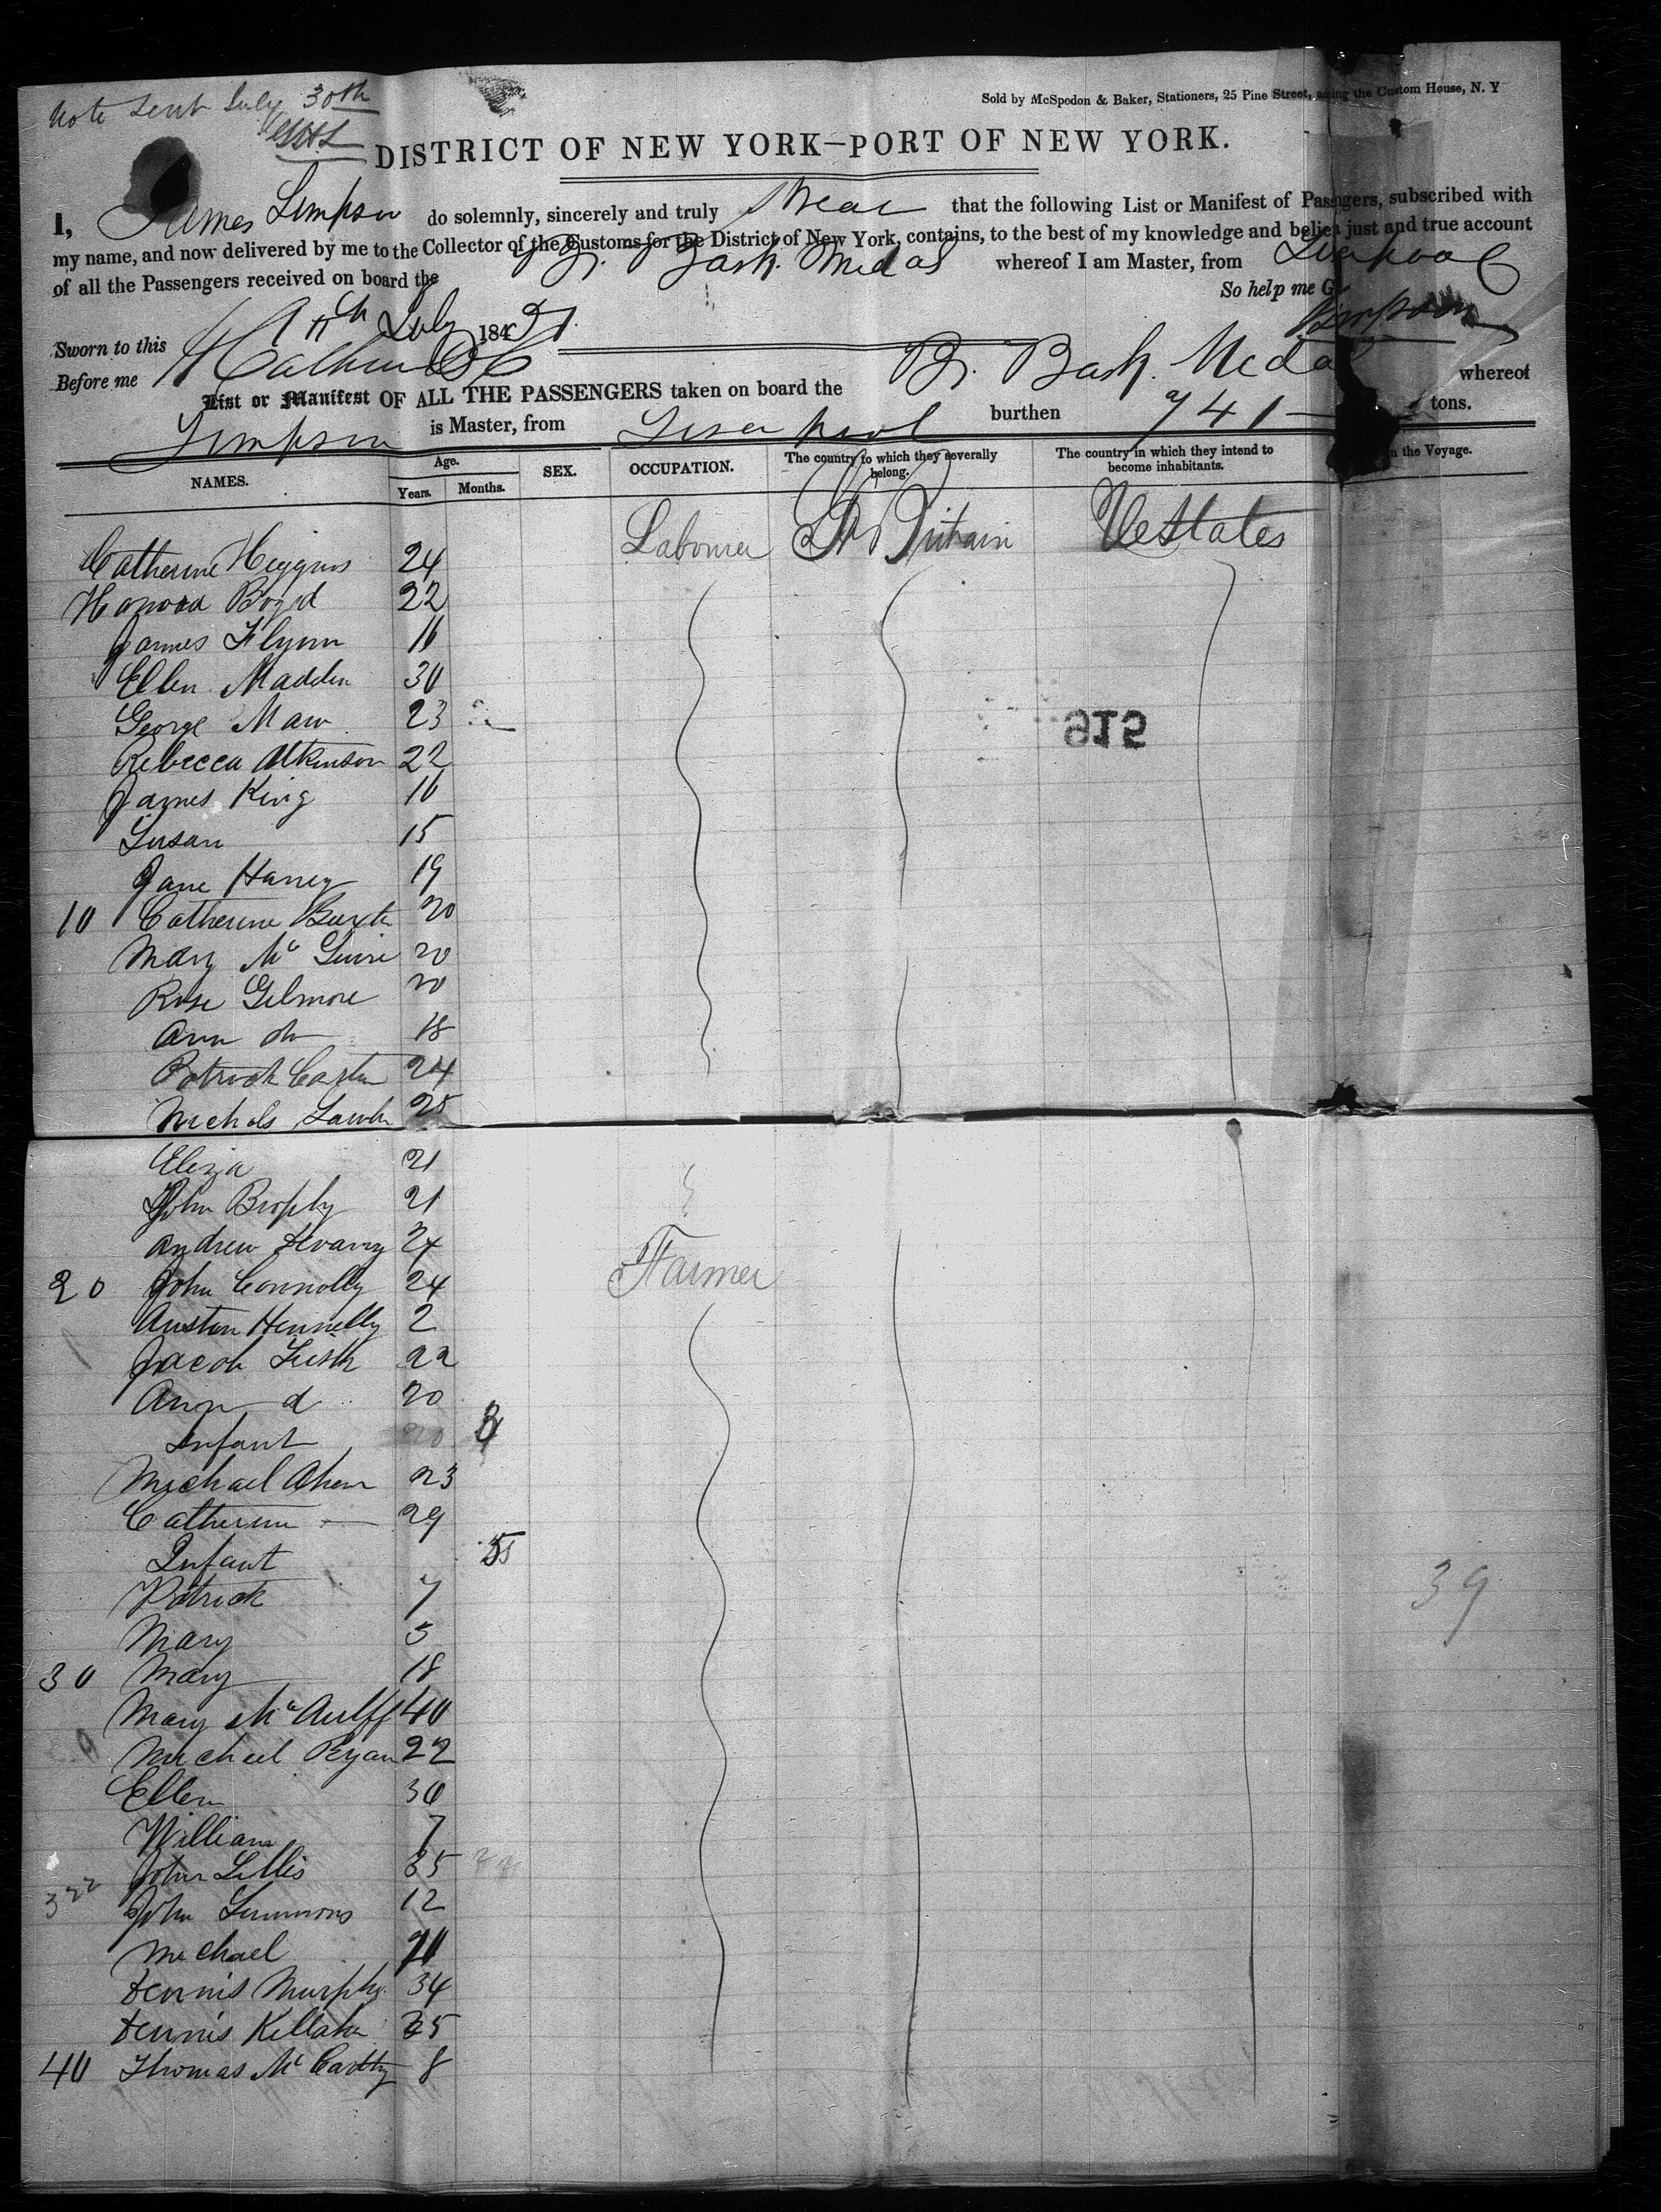 Note Sent July 30th
Sold by McSpedon & Baker, Stationers, 25 Pine Street, the Custom House, N. Y
DISTRICT OF NEW YORK—PORT OF NEW YORK.
I, James Simpson do solemnly, sincerely and truly Swear that the following List or Manifest of Passengers, subscribed with
my name, and now delivered by me to the Collector of the Customs for the District of New York, contains, to the best of my knowledge and belief just and true account
of all the Passengers received on board the Br. Bark. Medal whereof I am Master, from Liverpool
So help me G
Sworn to this July 184 51. Simpson
Before me
List or Manifest OF ALL THE PASSENGERS taken on board the Br. Bark. Medal whereof
Simpson is Master, from Liverpool burthen 741 tons.
NAMES. Age. Years. Months. SEX. OCCUPATION. The country to which they severally belong. The country in which they intend to become inhabitants. n the Voyage.
Catherine Higgins 24 Labourer Gt Britain UeStates
Honora Boyd 22
James Flynn 11
Ellen Madden 30
George Maw 23
915
Rebecca Atkinson 22
James King 16
Susan 15
Jane Haney 19
10 Catherine Buxte 20
Mary Mc Guire 20
Rose Gilmore 20
Ann do 18
Patrick Carten 24
Nichols 25
Eliza 21
John Brophy 21
Andrew 24
20 John Connolly 24 Farmer
Austin Hennelly 2
Jacob 22
Ann d 20
Infant
Michael Ahern 23
Catherine — 29
Infant 5
Patrick 7
39
Mary 5
30 Mary 18
Mary Mc Auliff 40
Micheel Ryan 22
Ellen 30
William 7
John Lillis 35
322
John Simmons 12
Michael
Dennis Murphy 34
Dennis Killaha 35
40 Thomas Mc Carthy 8